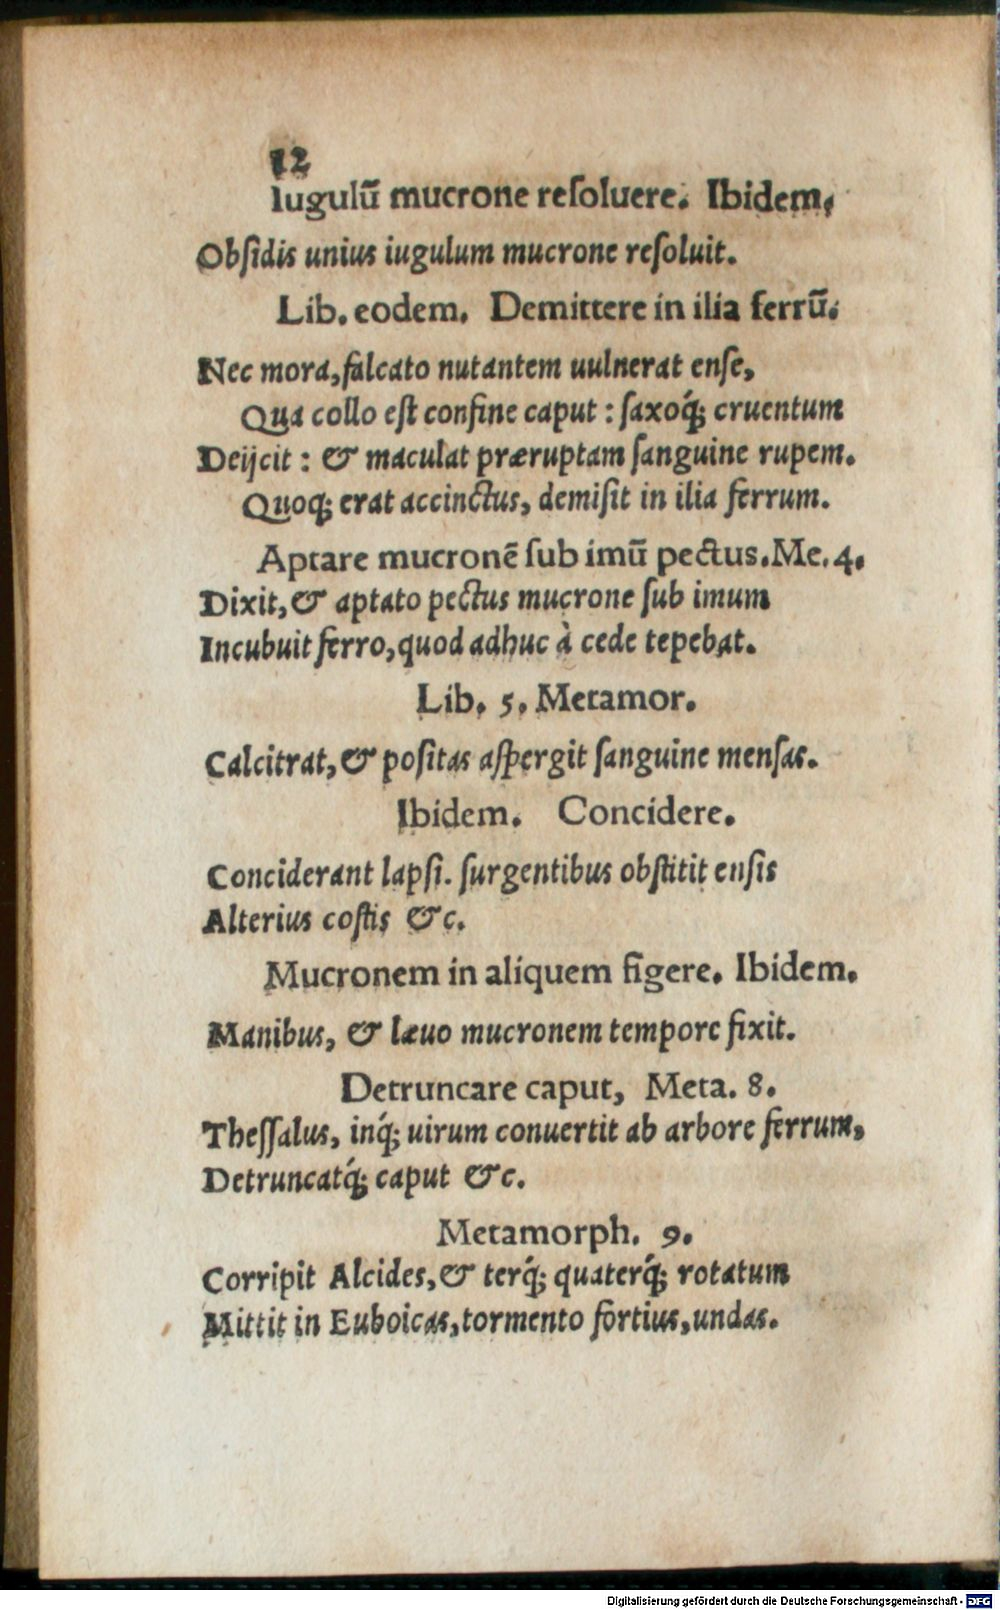 12
Iugulū mucrone reſoluere. Ibidem,
Obſidis unius iugulum mucrone reſoluit.
Lib. eodem. Demittere in ilia ferrū.
Nec mora, falcato nutantem uulnerat enſe,
Qua collo eſt confine caput : ſaxoq́; cruentum
Deijcit : & maculat præruptam ſanguine rupem.
Quoq; erat accinctus, demiſit in ilia ferrum.
Aptare mucronē ſub imū pectus. Me. 4.
Dixit, & aptato pectus mucrone ſub imum
Incubuit ferro, quod adhuc à cede tepebat.
Lib. 5. Metamor.
Calcitrat, & poſitas aſpergit ſanguine menſas.
Ibidem. Concidere.
Conciderant lapſi. ſurgentibus obſtitit enſis
Alterius coſtis &c.
Mucronem in aliquem figere. Ibidem.
Manibus, & læuo mucronem tempore fixit.
Detruncare caput, Meta. 8.
Theſſalus, inq́; uirum conuertit ab arbore ferrum,
Detruncatq́; caput &c.
Metamorph. 9.
Corripit Alcides, & terq́; quaterq́; rotatum
Mittit in Euboicas, tormento fortius, undas.
Digitalisierung gefördert durch die Deutsche Forschungsgemeinschaft - DFG